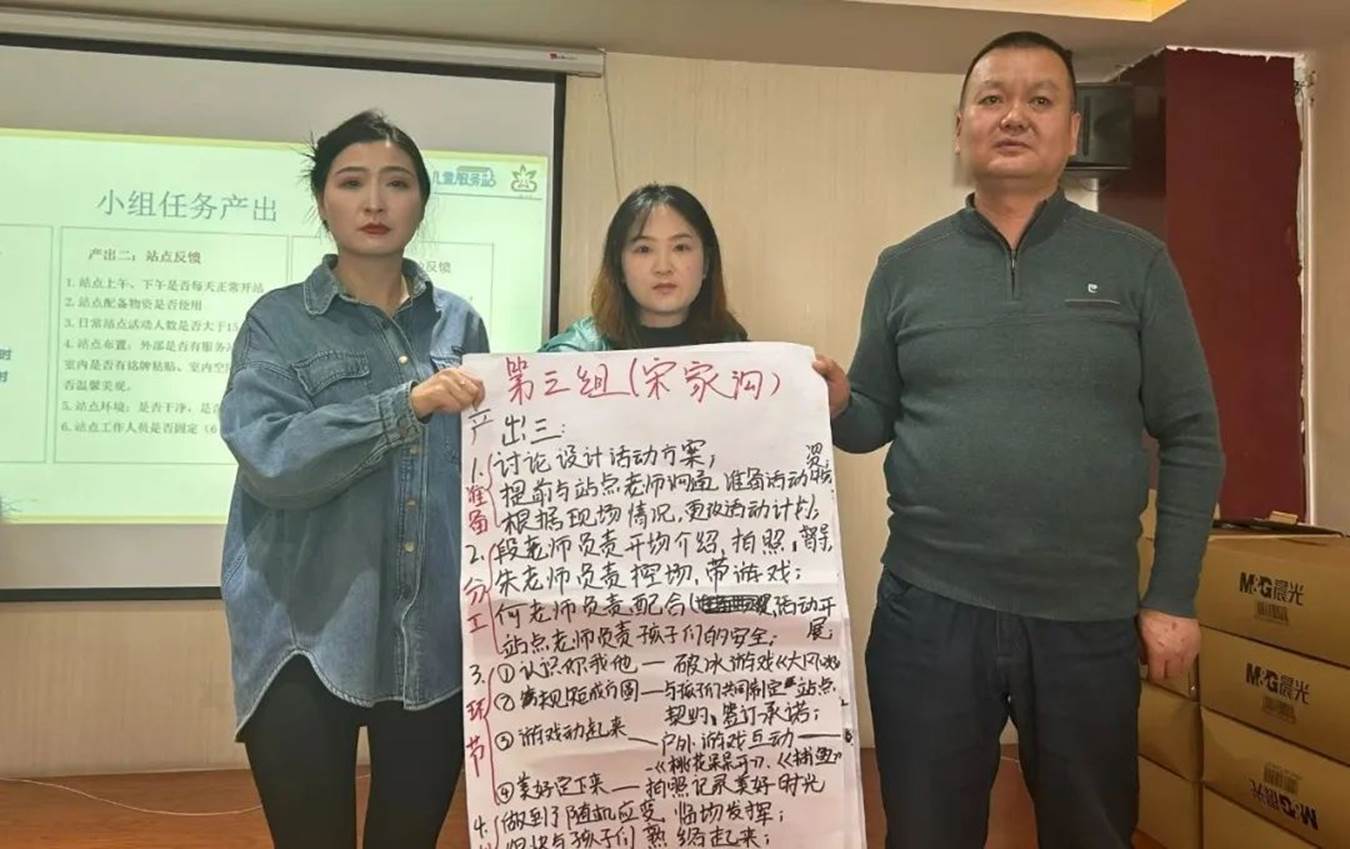 儿童服务站
小组任务产出
产出二：站点反馈
1.站点上午、下午是否每天正常开站
2.站点配备物资是否使用
3.日常站点活动人数是否大于15
4.站点布置：外部是否有服务站
室内是否有铭牌粘贴、室内空间
否温馨美观。
5.站点环境：是否干净，是否
6.站点工作人员是否固定（6
反馈
时
时
第三组(宋家沟)
产出三:
准备
1. 讨论设计活动方案;
提前与站点老师沟通,准备活动物资;
根据现场情况,更改活动计划;
分工
2. 段老师负责开场介绍,拍照,督导;
朱老师负责控场,带游戏;
何老师负责配合活动开展
站点老师负责孩子们的安全;
环节
3. ①认识你我他—破冰游戏《大风吹》
②规矩成方圆—与孩子们共同制定站点
契约,签订承诺;
③游戏动起来—户外游戏互动
—《桃花朵朵开》、《捕鱼》
④美好定下来—拍照记录美好时光
4. 做到了随机应变,临场发挥;
尽快与孩子们熟络起来;
M&G晨光
M&G晨光
M&G晨光